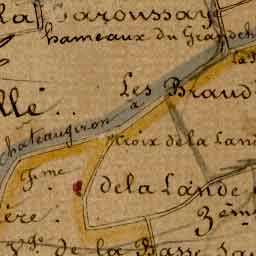 la Jaroussaye
hameaux du Grandch
Les Braud
à
chateaugiron
croix de la Land
F.me
de la Lande
ière.
3ème
de la Basse